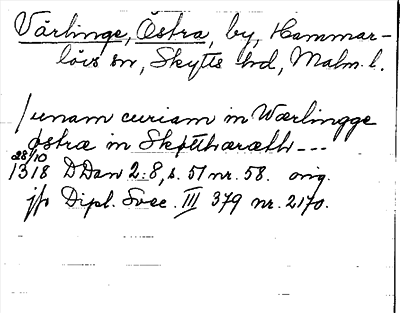 Värlinge, Östra, by, Hammar-
lövs sn, Skytts hd, Malm. l.
/unam curiam in Wærlingge
østræ in Skøttharæth---
28/10
1318 DDan 2:8, s. 51 nr. 58. orig.
jfr Dipl. Svec. III 379 nr. 2170.